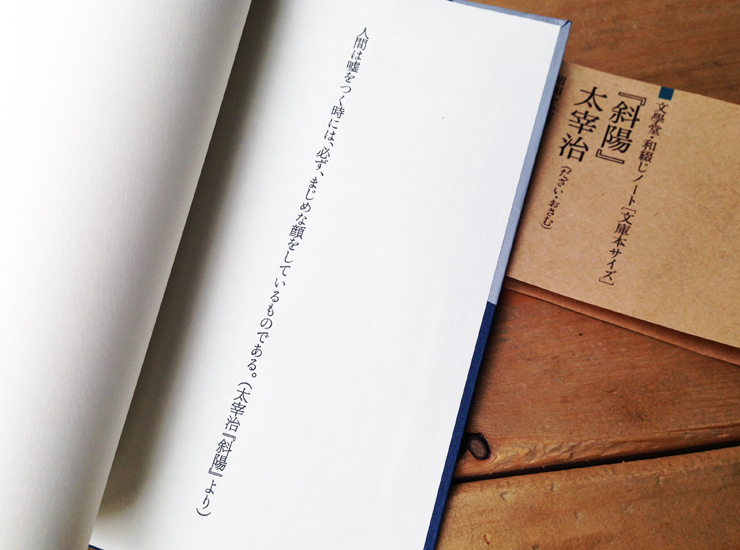 人間は嘘をつく時には、必ず、まじめな顔をしているものである。（太宰治『斜陽』より）
文學堂・和綴じノート［文庫本サイズ］
『斜陽』
太宰治（だざい・おさむ）